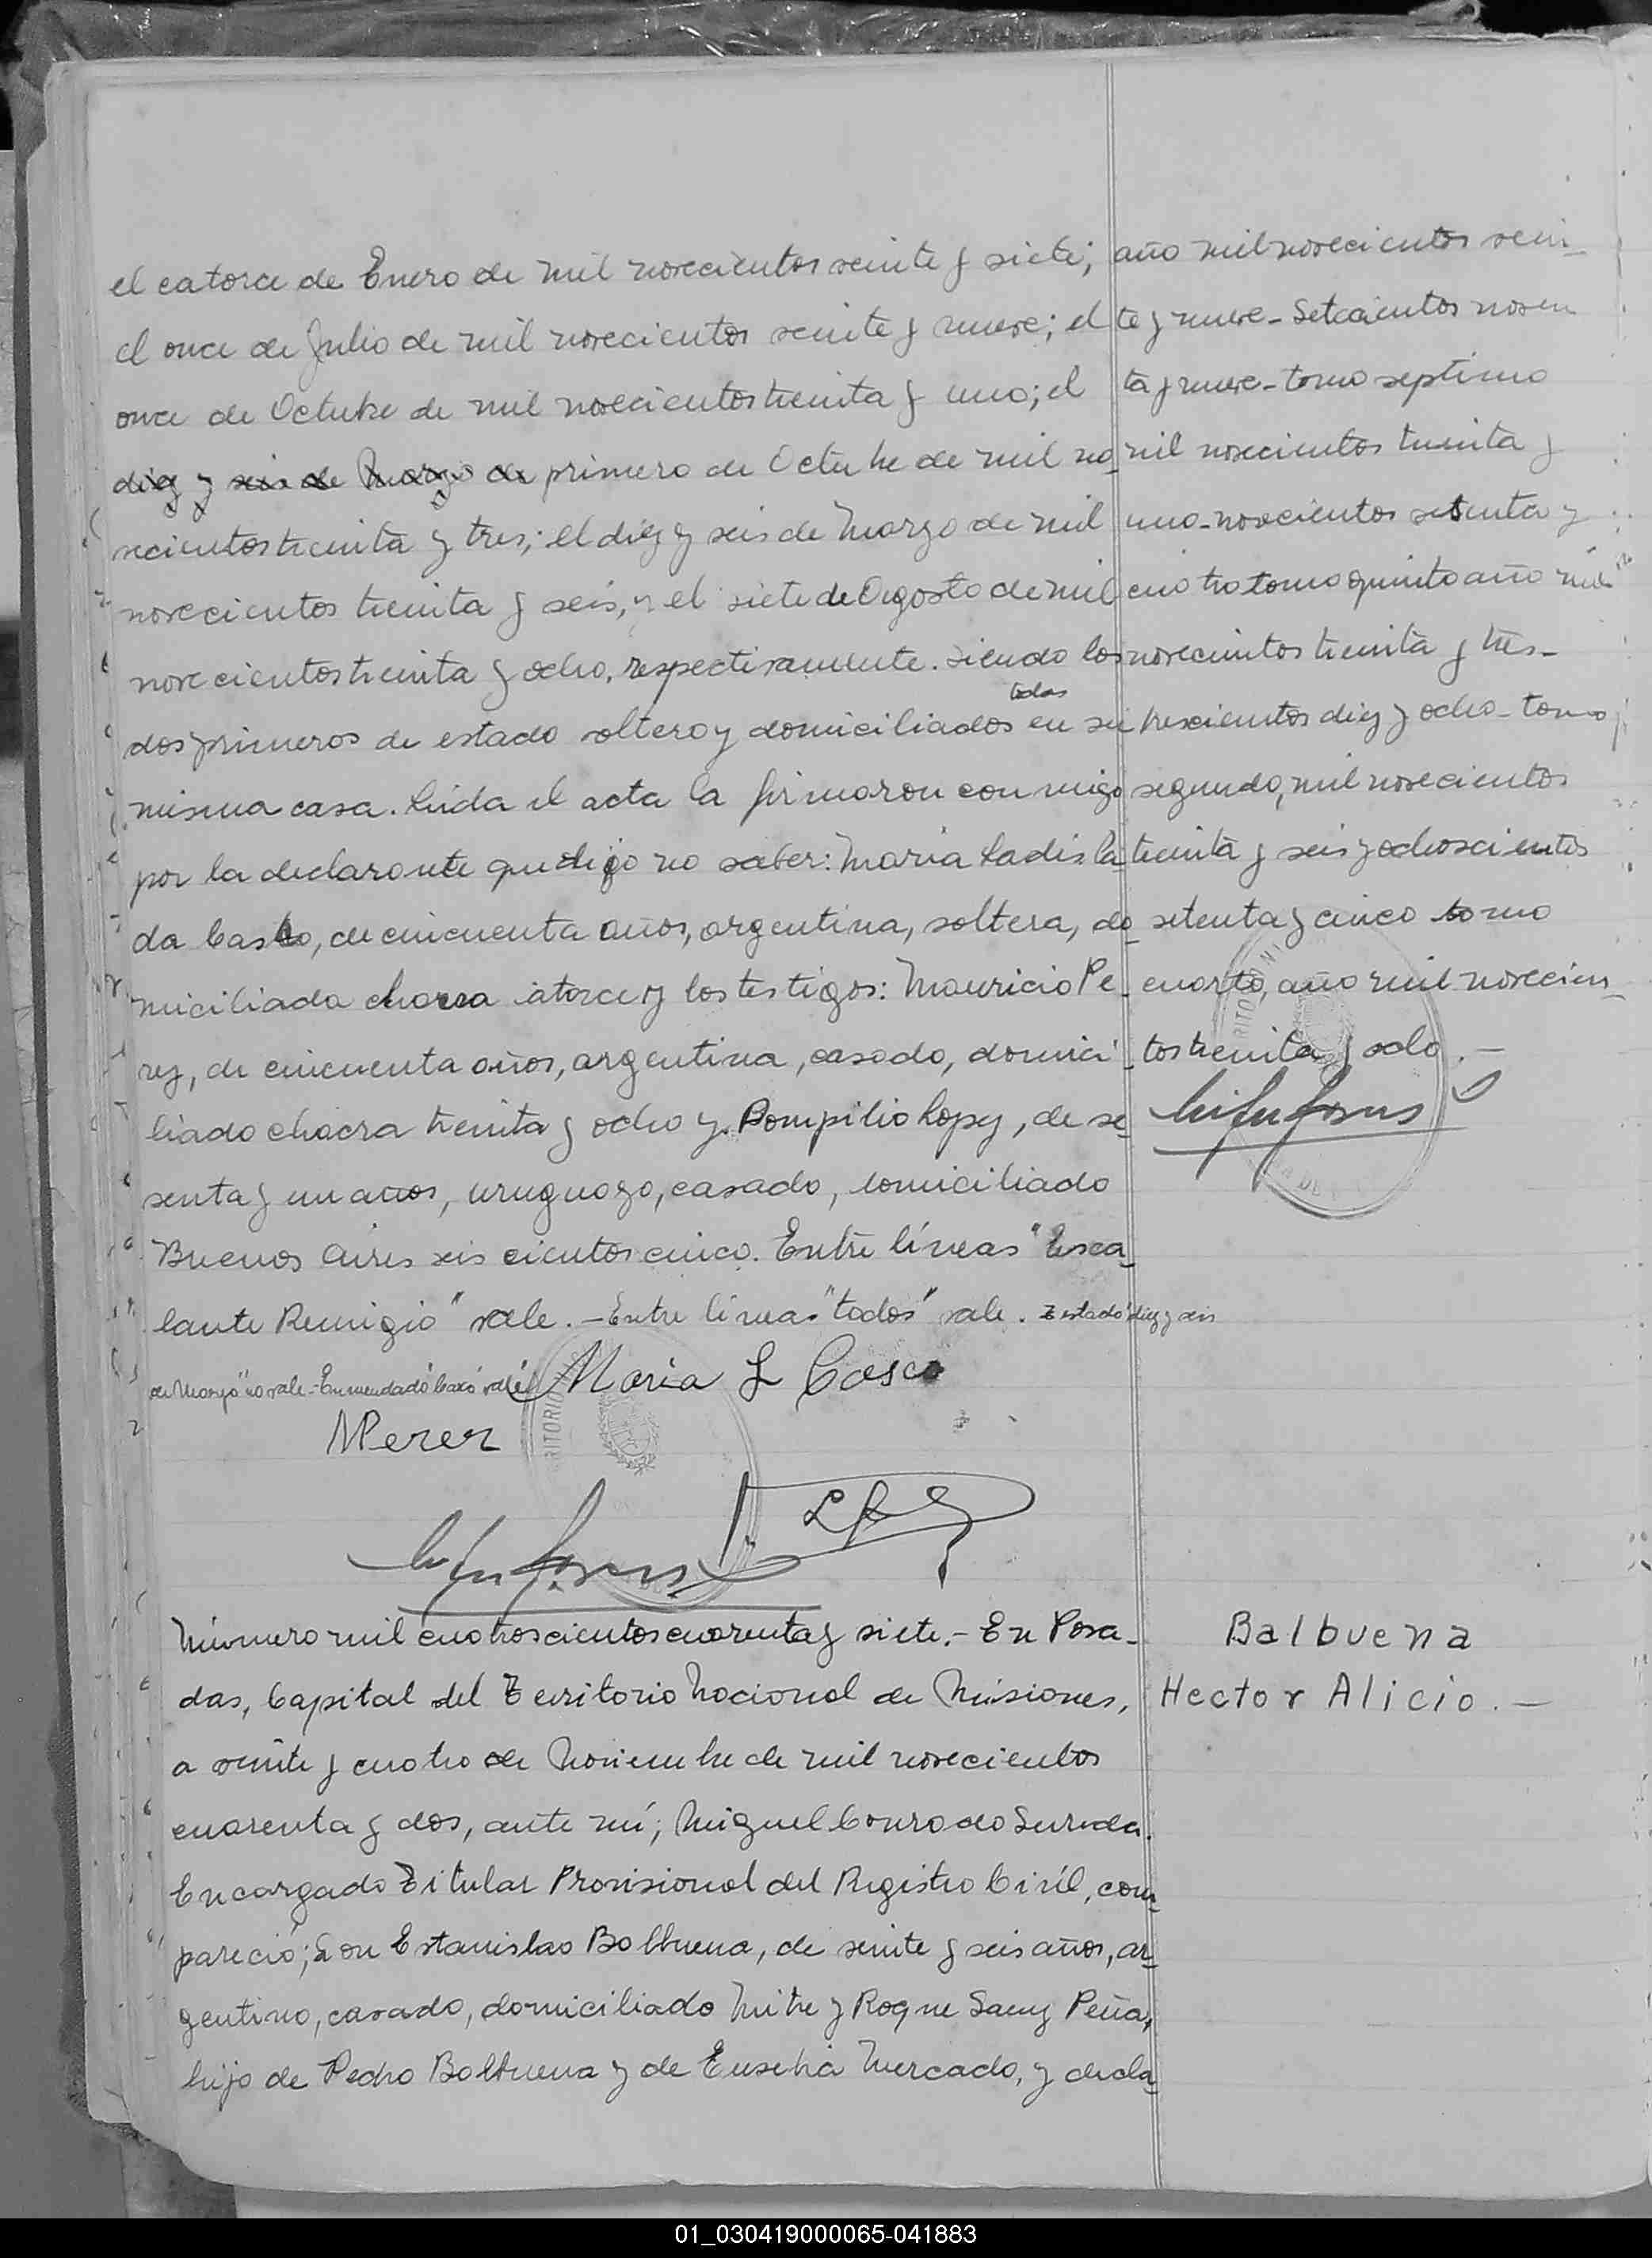 el catorce de Enero de mil novecientos veinte y siete;
el once de Julio de mil novecientos veinte y nueve; el
once de Octubre de mil novecientos treinta y uno; el
diez y seis de Marzo de primero de Octubre de mil no_
vecientos treinta y tres; el diez y seis de Marzo de mil
novecientos treinta y seis, y el siete de Agosto de mil
novecientos treinta y ocho, respectivamente. Siendo los
todos
dos primeros de estado soltero y domiciliados en su
misma casa. Leida el acta la firmaron conmigo
por la declarante que dijo no saber: Maria Ladisla_
da Casco, de cincuenta años, argentina, soltera, do_
miciliada chacra catorce y los testigos: Mauricio Pe_
rez, de cincuenta años, argentina, casado, domici_
liado chacra treinta y ocho y Pompilio Lopez, de se_
senta y un años, uruguayo, casado, domiciliado
Buenos Aires seis cientos cinco. Entre líneas "Esca_
lante Remigio" vale. - Entre líneas "todos" vale. Testado "diez y seis
de Marzo" no vale - Enmendado vale
Maria L Casco
MPerez
año mil novecientos vein_
te y nueve - Setecientos noven
ta y nueve - tomo septimo
mil novecientos treinta y
uno - novecientos setenta y
cuatro tomo quinto año mil
novecientos treinta y tres -
trescientos diez y ocho - tomo
segundo, mil novecientos
treinta y seis y ochoscientos
setenta y cinco tomo
cuarto, año mil novecien_
tos treinta y ocho. -
Número mil cuatroscientos cuarenta y siete. - En Posa_
das, Capital del Territorio Nacional de Misiones,
a veinte y cuatro de Noviembre de mil novecientos
cuarenta y dos, ante mí; Miguel Conrado Sureda.
Encargado Titular Provisional del Registro Civíl, com_
pareció; Don Estanislao Balbuena, de veinte y seis años, ar_
gentino, casado, domiciliado Mitre y Roque Saenz Peña,
hijo de Pedro Balbuena y de Eusebia Mercado, y decla_
Balbuena
Hector Alicio. -
01_030419000065-041883